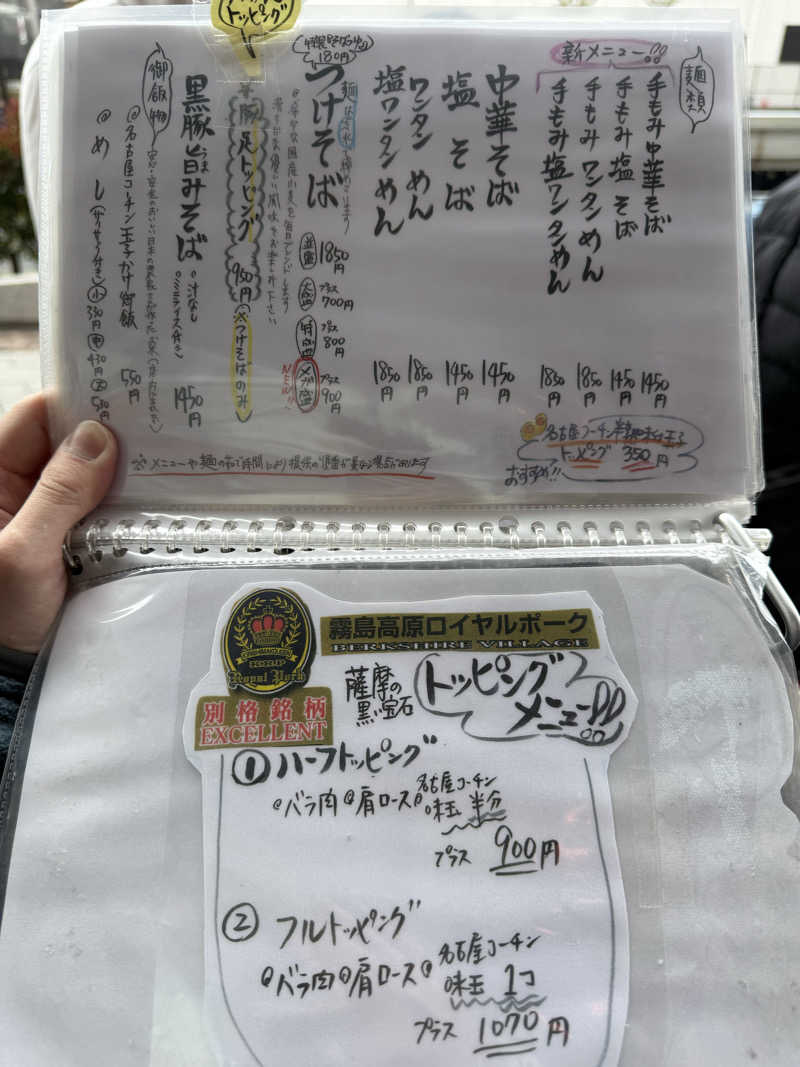 トッピング
麺類
新メニュー!!
手もみ中華そば 1450円
手もみ塩そば 1450円
手もみワンタンめん 1850円
手もみ塩ワンタンめん 1850円
中華そば 1450円
塩そば 1450円
ワンタンめん 1850円
塩ワンタンめん 1850円
180円
つけそば
並盛 1850円
大盛 プラス700円
特盛 プラス800円
メガ盛 プラス900円
NEW!!
豚足トッピング 950円(※つけそばのみ)
黒豚旨みそば 1450円
うま
御飯物
@名古屋コーチン玉子かけ御飯 550円
@めし
小 330円
中 430円
大 530円
名古屋コーチン半熟味玉子
トッピング 350円
おすすめ!!
霧島高原ロイヤルポーク
BERKSHIRE VILLAGE
KRP
Royal Pork
別格銘柄
EXCELLENT
薩摩の
黒い宝石
トッピング
メニュー!!
① ハーフトッピング
@バラ肉@肩ロース@名古屋コーチン
味玉 半分
プラス 900円
② フルトッピング
@バラ肉@肩ロース@名古屋コーチン
味玉 1コ
プラス 1070円